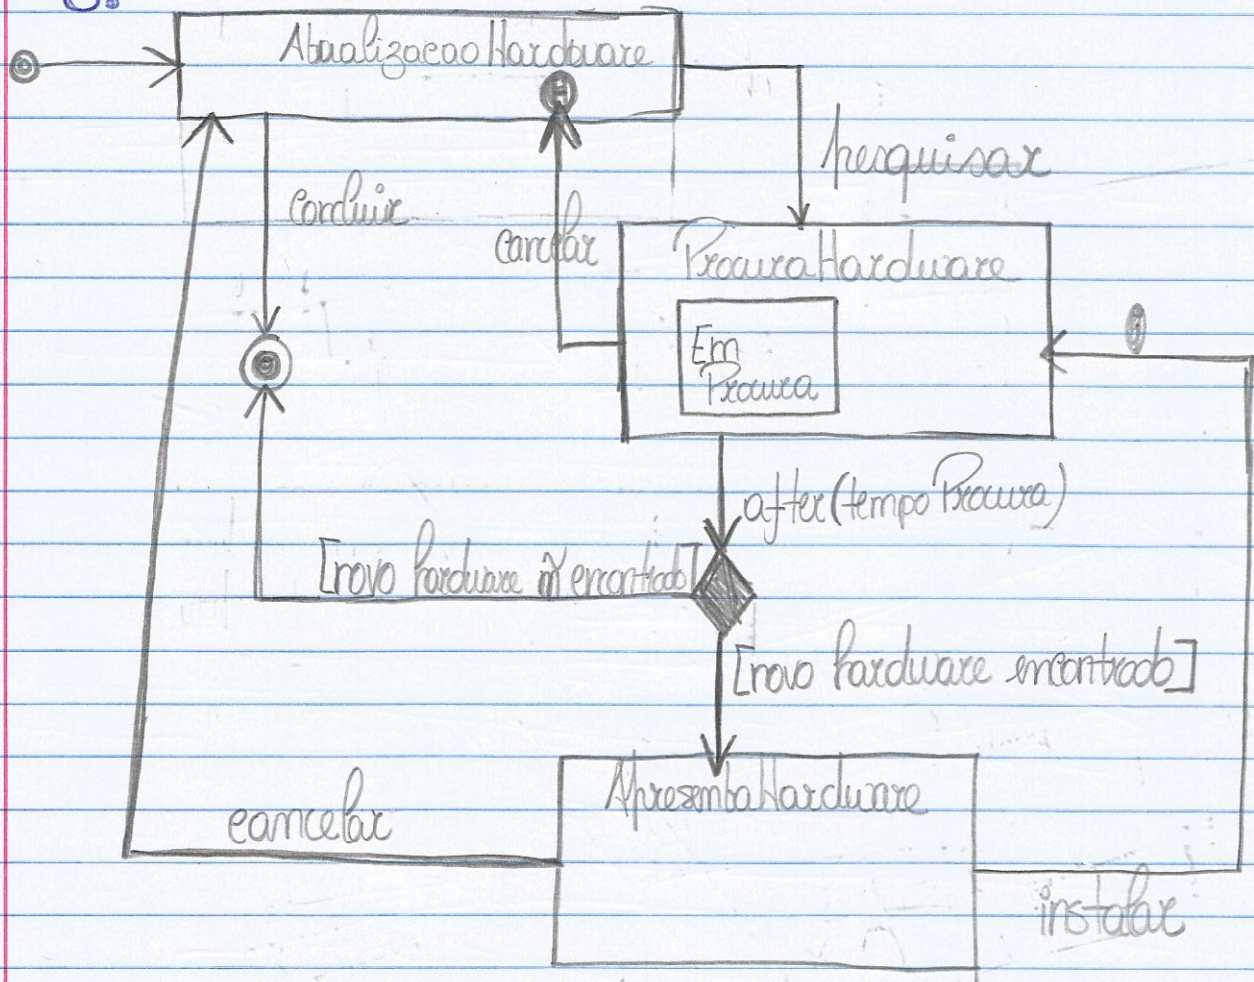 AtualizacaoHardware
pesquisar
concluir
cancelar
ProcuraHardware
Em
Procura
after(tempoProcura)
[novo hardware ñ encontrado]
[novo hardware encontrado]
ApresentaHardware
cancelar
instalar